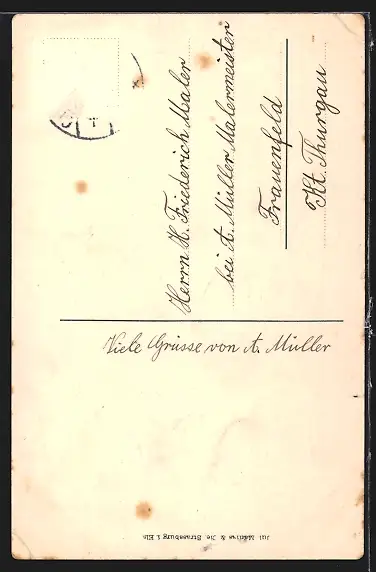 Herrn H. Friederich Maler
bei A. Müller Malermeister
Frauenfeld
Kt. Thurgau
Viele Grüsse von A. Müller
Strassburg i. Els